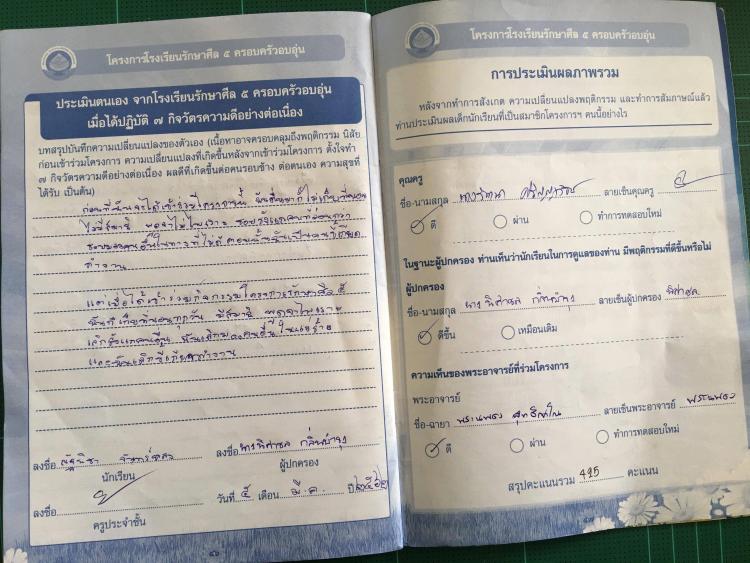 โครงการโรงเรียนรักษาศีล ๕ ครอบครัวอบอุ่น
ประเมินตนเอง จากโรงเรียนรักษาศีล ๕ ครอบครัวอบอุ่น
เมื่อได้ปฏิบัติ ๗ กิจวัตรความดีอย่างต่อเนื่อง
บทสรุปบันทึกความเปลี่ยนแปลงของตัวเอง (เนื้อหาอาจครอบคลุมถึงพฤติกรรม นิสัย
ก่อนเข้าร่วมโครงการ ความเปลี่ยนแปลงที่เกิดขึ้นหลังจากเข้าร่วมโครงการ ตั้งใจทำ
๗ กิจวัตรความดีอย่างต่อเนื่อง ผลดีที่เกิดขึ้นต่อคนรอบข้าง ต่อตนเอง ความสุขที่
ได้รับ เป็นต้น)
ก่อนที่ฉันจะได้เข้าร่วมโครงการนี้ ฉันตื่นมาก็ไม่เก็บที่นอน
ไม่มีสมาธิ พูดจาไม่ไพเราะ ชอบรังแกคนที่อ่อนกว่า
ชอบมองคนอื่นในทางที่ไม่ดี ตอนนั้นฉันเป็นคนขี้เกียจ
ทำงาน
แต่เมื่อได้เข้าร่วมกิจกรรมโครงการรักษาศีล ๕
ฉันก็เก็บที่นอนทุกวัน มีสมาธิ พูดจาไพเราะ
เลิกรังแกคนอื่น ฉันเลิกมองคนอื่นในแง่ร้าย
และฉันเลิกขี้เกียจทำงาน
ลงชื่อ ณัฐนิชา
นักเรียน
ลงชื่อ นางพิศาลล กลิ่นจำรุง
ผู้ปกครอง
ลงชื่อ
ครูประจำชั้น
วันที่ ๕ เดือน มี.ค. ปี ๒๕๖๒
โครงการโรงเรียนรักษาศีล ๕ ครอบครัวอบอุ่น
การประเมินผลภาพรวม
หลังจากทำการสังเกต ความเปลี่ยนแปลงพฤติกรรม และทำการสัมภาษณ์แล้ว
ท่านประเมินผลเด็กนักเรียนที่เป็นสมาชิกโครงการฯ คนนี้อย่างไร
คุณครู
ชื่อ-นามสกุล ลายเซ็นคุณครู
ดี ผ่าน ทำการทดสอบใหม่
ในฐานะผู้ปกครอง ท่านเห็นว่านักเรียนในการดูแลของท่าน มีพฤติกรรมที่ดีขึ้นหรือไม่
ผู้ปกครอง
ชื่อ-นามสกุล ลายเซ็นผู้ปกครอง
ดีขึ้น เหมือนเดิม
ความเห็นของพระอาจารย์ที่ร่วมโครงการ
พระอาจารย์
ชื่อ-ฉายา ลายเซ็นพระอาจารย์
ดี ผ่าน ทำการทดสอบใหม่
สรุปคะแนนรวม 495 คะแนน